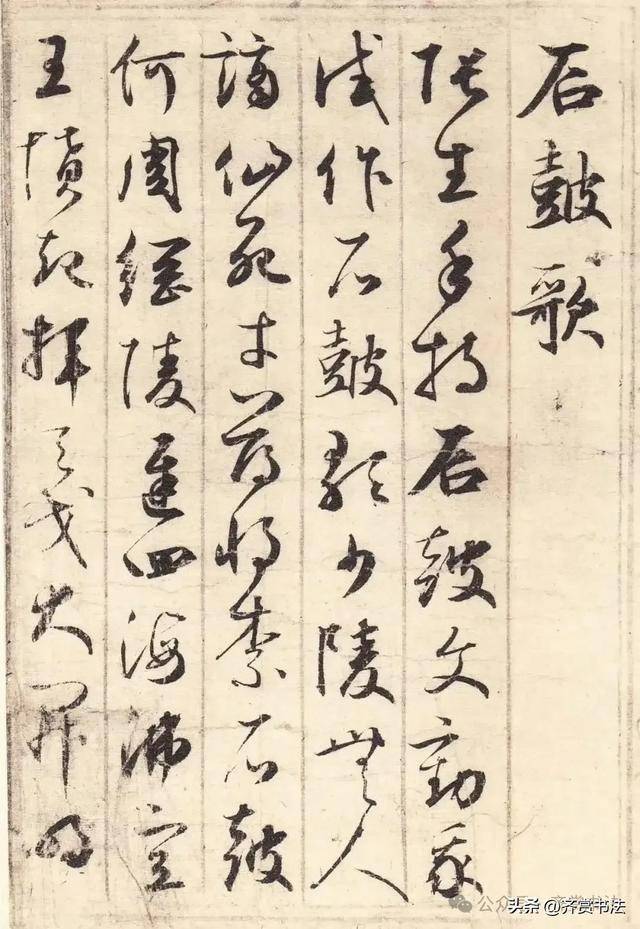 石鼓歌
張生手持石鼓文勸我
試作石鼓歌少陵無人
謫仙死才薄將奈石鼓
何周綱陵遲四海沸宣
王憤起揮天戈大開明
头条 @齐赏书法